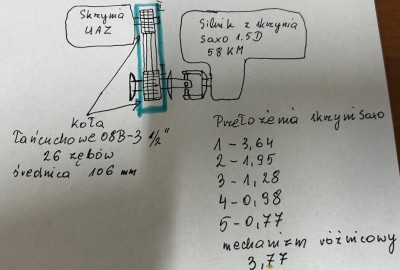 Skrzynia
UAZ
Silnik z skrzynia
saxo 1.5D
58 KM
koła
łańcuchowe 08B-3 1/2"
26 zębów
średnica 106 mm
Przełożenia skrzyni Saxo
1 - 3,64
2 - 1,95
3 - 1,28
4 - 0,98
5 - 0,77
mechanizm różnicowy
3,77